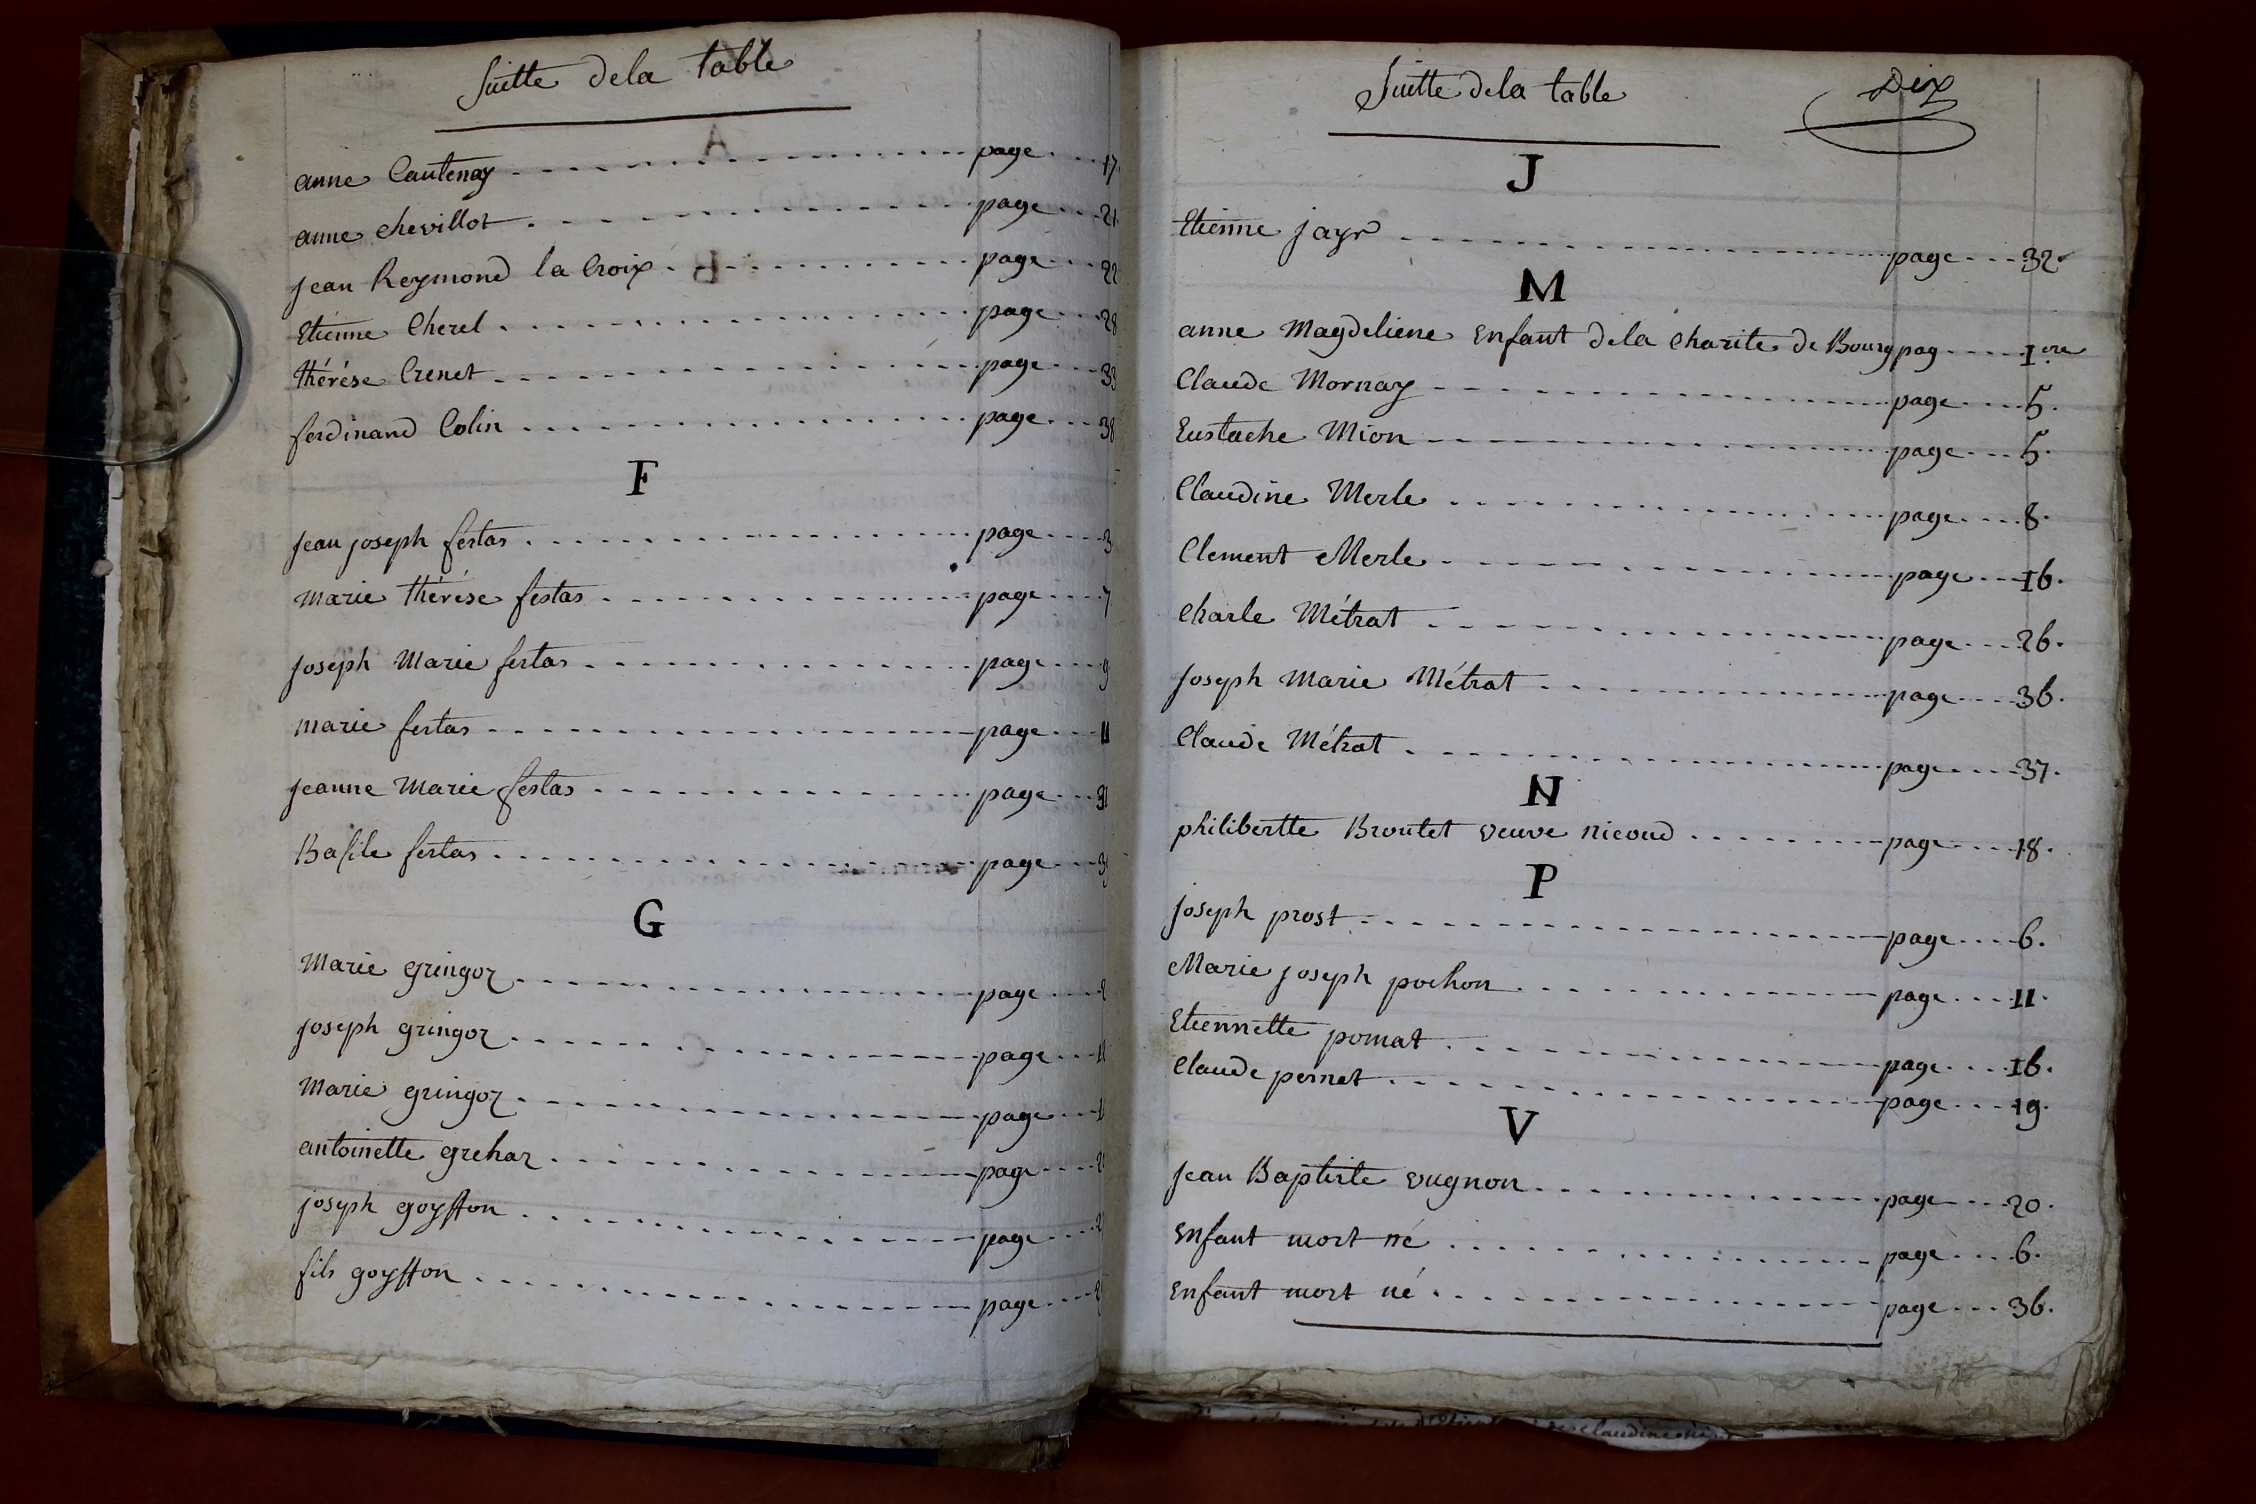 Suitte dela table
anne Cautenay page 17
anne chevillot page 21
jean Reymond la Croix page 22
Etienne Cherel page 28
thérése Crenet page 33
ferdinand Colin page 38
F
jean joseph festas page 3
marie thérése festas page 7
joseph Marie festas page 9
marie festas page 11
jeanne Marie festas page 31
Basile festas page
G
Marie gringoz page
joseph gringoz page
Marie gringoz page
antoinette grehaz page
joseph goyffon page
fils goyffon page
Suitte dela table
Dix
J
Etienne jayr page 32.
M
anne Magdeliene Enfant dela charite de Bourg pag 1ere
Claude Mornay page 5.
Eustache Mion page 5.
Claudine Merle page 8.
Clement Merle page 16.
charle Métrat page 26.
joseph Marie Métrat page 36.
Claude Métrat page 37.
N
philibertte Broutet veuve nicoud page 18.
P
joseph prost page 6.
Marie joseph pochon page 11.
Etiennette pomat page 16.
Claude pernet page 19.
V
jean Baptiste vugnon page 20.
Enfant mort né page 6.
Enfant mort né page 36.